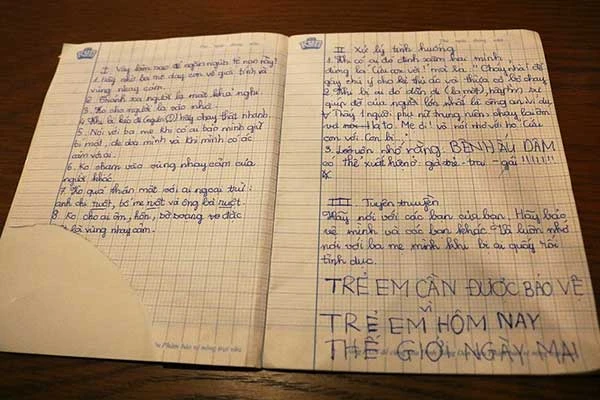 I Vậy làm sao để ngăn ngừa tệ nạn này?
1. Hãy nhờ ba mẹ dạy con về giới tính và
vùng nhạy cảm.
2. Tránh xa người lạ mặt khả nghi.
3. Ko cho người lạ vào nhà.
4. Khi bị kéo đi hãy chạy thật nhanh.
5. Nói với ba mẹ khi có ai bảo mình giữ
bí mật, đe dọa mình và khi mình có ác
cảm với ai.
6. Ko chạm vào vùng nhạy cảm của
người khác.
7. Ko quá thân mật với ai ngoại trừ:
anh chị ruột, bố mẹ ruột và ông bà ruột.
8 Ko cho ai ôm, hôn, sờ soạng vo đặc
là vùng nhạy cảm.
II Xử lý tình huống
1. Khi có ai đó định xâm hại mình
đừng la "Cứu con với" mà la "Cháy nhà" để
gây chú ý cho kẻ thủ ác và thừa cơ bỏ chạy.
2. Khi bị ai đó dẫn đi (lạ mặt), hãy tìm sự
giúp đỡ của người lớn nhất là ông an. Ví dụ
Thấy 1 người phụ nữ trung niên, chạy lại ôm
và la to "Mẹ ơi" và nói nhỏ với họ "Cứu
con với. Con bị
3. Luôn nhớ rằng BỆNH ẤU DÂM
có thể xuất hiện ở: già trẻ - trai - gái !!!!!!
III Tuyên truyền
Hãy nói với các bạn của bạn. Hãy bảo
vệ mình và các bạn khác. Và luôn nhớ
nói với ba mẹ mình khi bị ai quấy rối
tình dục.
TRẺ EM CẦN ĐƯỢC BẢO VỆ
vì
TRẺ EM HÔM NAY
THẾ GIỚI NGÀY MAI